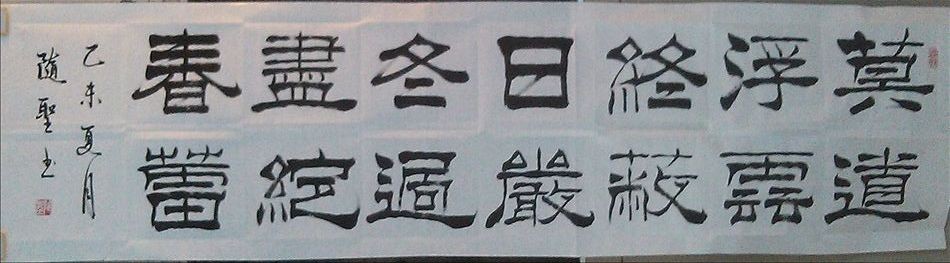 莫道
浮雲
終蔽
日嚴
冬過
盡綻
春蕾
乙未夏月
隨聖书